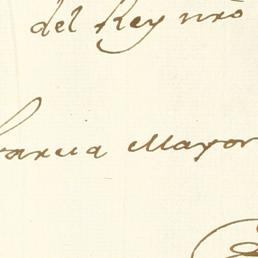 del Rey nro
Garcia Mayor